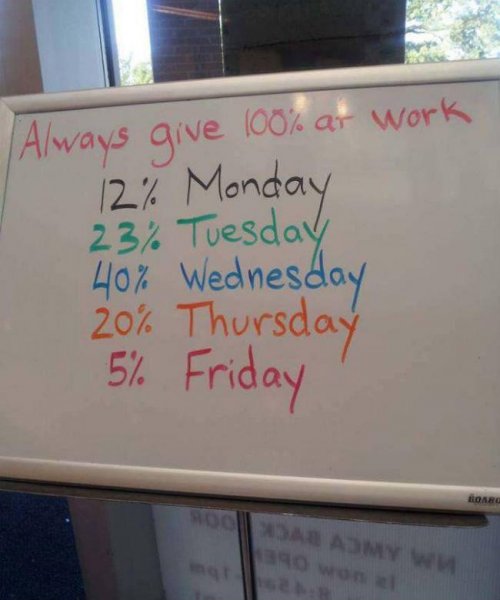 Always give 100% at work
12% Monday
23% Tuesday
40% Wednesday
20% Thursday
5% Friday
BOARD
NW YMCA BACK
DOOR
is now OPEN